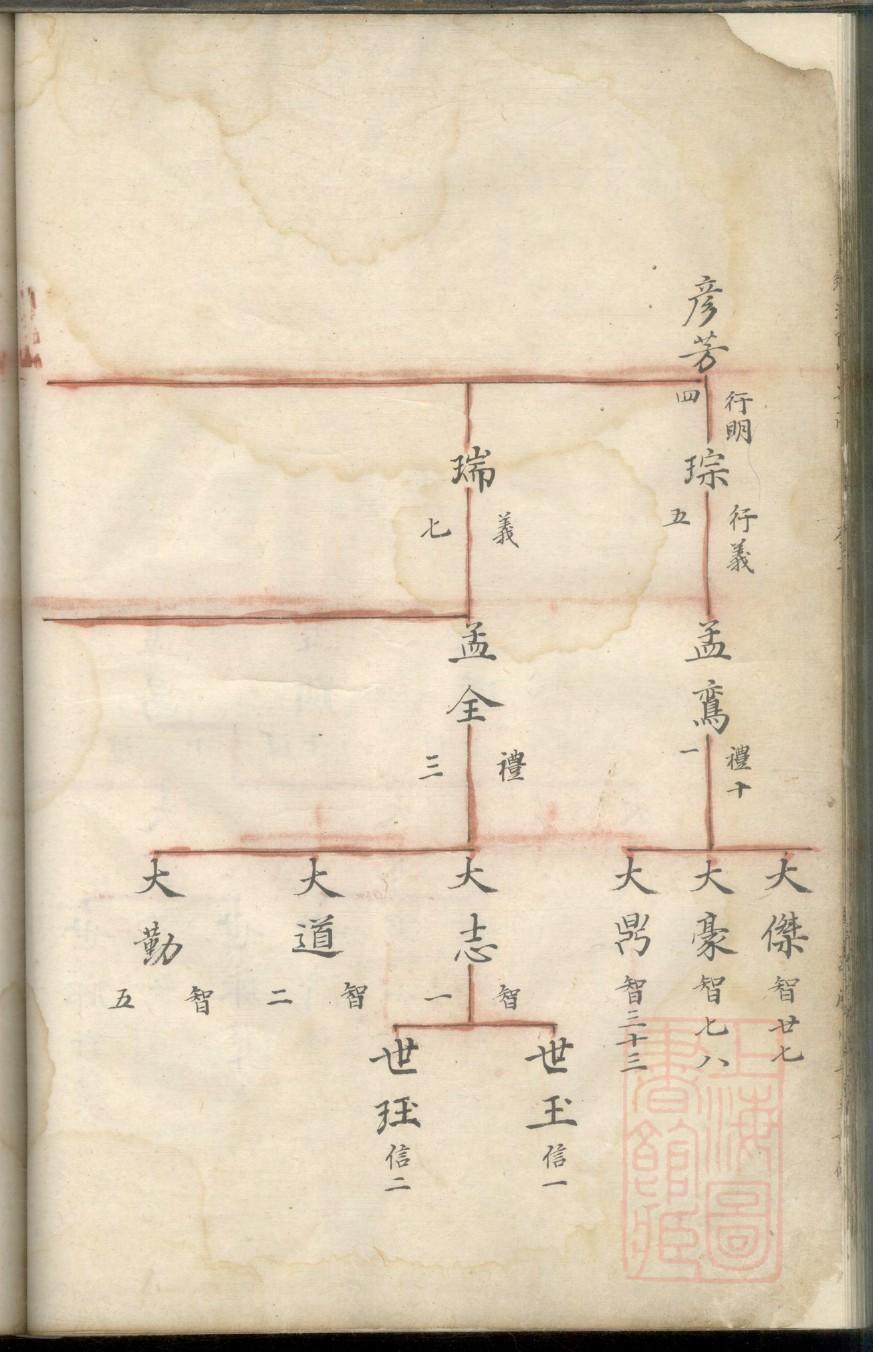 彥芳
行明四
琮
行義五
孟鸞
禮十一
大傑
智廿七
大豪
智七八
大鼎
智三十三
瑞
義七
孟全
禮三
大志
智一
世玉
信一
世珏
信二
大道
智二
大勤
智五
上海圖
書館藏